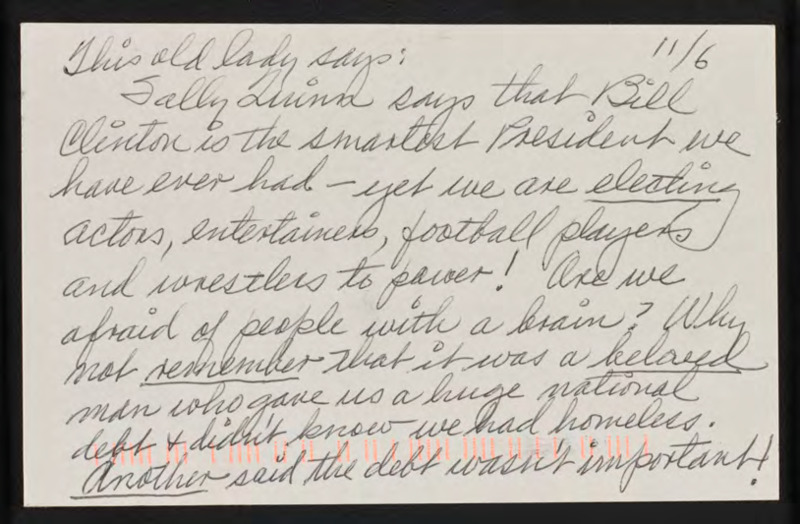 This old lady says: 11/6
Sally Quinn says that Bill
Clinton is the smartest President we
have ever had – yet we are electing
actors, entertainers, football players
and wrestlers to power! Are we
afraid of people with a brain? Why
not remember that it was a beloved
man who gave us a huge national
debt & didn't know we had homeless.
Another said the debt wasn't important!